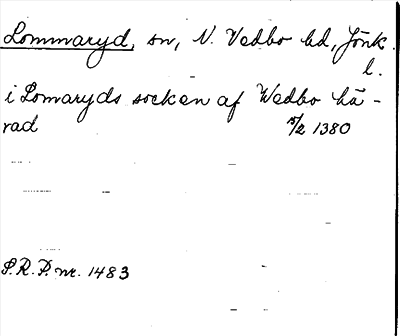 Lommaryd, sn, N. Vedbo hd, Jönk.
l.
i Lomaryds socken af Wedbo hä-
rad 5/2 1380
S.R.P. nr. 1483